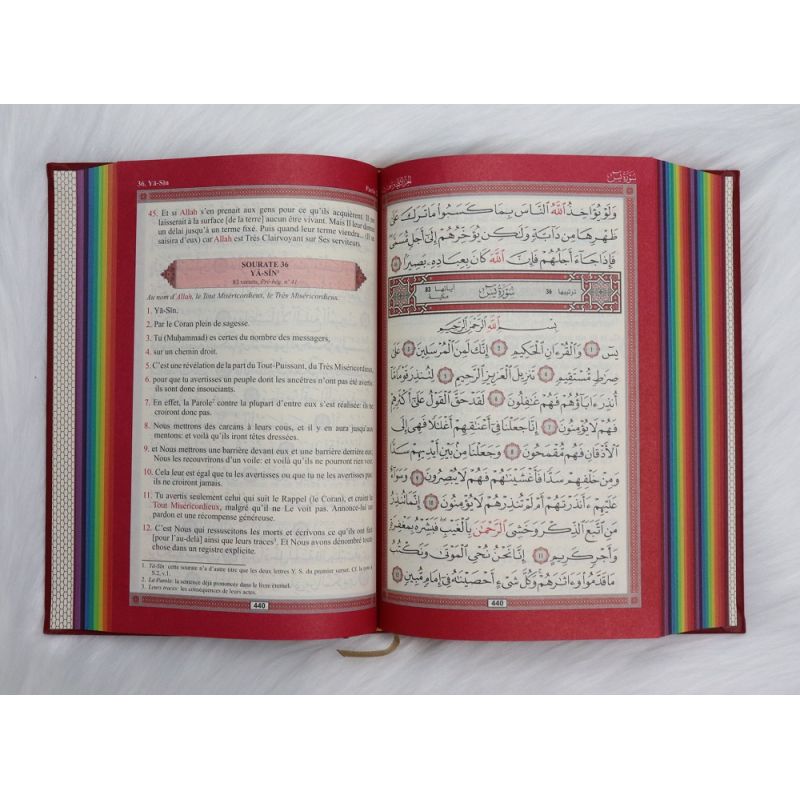 36. Yâ-Sîn
45. Et si Allah s'en prenait aux gens pour ce qu'ils acquièrent, Il ne
laisserait à la surface [de la terre] aucun être vivant. Mais Il leur donne
un délai jusqu'à un terme fixé. Puis quand leur terme viendra... (Il se
saisira d'eux) car Allah est Très Clairvoyant sur Ses serviteurs.
SOURATE 36
YÂ-SÎN¹
83 versets, Pré-hég. n° 41
Au nom d'Allah, le Tout Miséricordieux, le Très Miséricordieux.
1. Yâ-Sîn.
2. Par le Coran plein de sagesse.
3. Tu (Muḥammad) es certes du nombre des messagers,
4. sur un chemin droit.
5. C'est une révélation de la part du Tout-Puissant, du Très Miséricordieux,
6. pour que tu avertisses un peuple dont les ancêtres n'ont pas été avertis
ils sont donc insouciants.
7. En effet, la Parole² contre la plupart d'entre eux s'est réalisée: ils ne
croiront donc pas.
8. Nous mettrons des carcans à leurs cous, et il y en aura jusqu'aux
mentons: et voilà qu'ils iront têtes dressées.
9. et Nous mettrons une barrière devant eux et une barrière derrière eux;
Nous les recouvrirons d'un voile: et voilà qu'ils ne pourront rien voir.
10. Cela leur est égal que tu les avertisses ou que tu ne les avertisses pas
ils ne croiront jamais.
11. Tu avertis seulement celui qui suit le Rappel (le Coran), et craint le
Tout Miséricordieux, malgré qu'il ne Le voit pas. Annonce-lui un
pardon et une récompense généreuse.
12. C'est Nous qui ressuscitons les morts et écrivons ce qu'ils ont fait
[pour l'au-delà] ainsi que leurs traces³. Et Nous avons dénombré toute
chose dans un registre explicite.
1. Yâ-Sîn: cette sourate n'a d'autre titre que les deux lettres Y. S. du premier verset. Cf. la note à
S.2, v.1.
2. La Parole: la sentence déjà prononcée dans le livre éternel.
3. Leurs traces: les conséquences de leurs actes.
440
سورة يس
وَلَوْ يُؤَاخِذُ اللَّهُ النَّاسَ بِمَا كَسَبُوا مَا تَرَكَ عَلَىٰ
ظَهْرِهَا مِن دَابَّةٍ وَلَٰكِن يُؤَخِّرُهُمْ إِلَىٰ أَجَلٍ مُّسَمًّى
فَإِذَا جَاءَ أَجَلُهُمْ فَإِنَّ اللَّهَ كَانَ بِعِبَادِهِ بَصِيرًا ٤٥
ترتيبها 36 سُورَةُ يسٓ آياتها 83 مكية
بِسْمِ اللَّهِ الرَّحْمَٰنِ الرَّحِيمِ
يسٓ ١ وَالْقُرْءَانِ الْحَكِيمِ ٢ إِنَّكَ لَمِنَ الْمُرْسَلِينَ ٣ عَلَىٰ
صِرَٰطٍ مُّسْتَقِيمٍ ٤ تَنزِيلَ الْعَزِيزِ الرَّحِيمِ ٥ لِتُنذِرَ قَوْمًا مَّا
أُنذِرَ ءَابَاؤُهُمْ فَهُمْ غَٰفِلُونَ ٦ لَقَدْ حَقَّ الْقَوْلُ عَلَىٰ أَكْثَرِهِمْ
فَهُمْ لَا يُؤْمِنُونَ ٧ إِنَّا جَعَلْنَا فِي أَعْنَٰقِهِمْ أَغْلَٰلًا فَهِيَ إِلَى
الْأَذْقَانِ فَهُم مُّقْمَحُونَ ٨ وَجَعَلْنَا مِن بَيْنِ أَيْدِيهِمْ سَدًّا
وَمِنْ خَلْفِهِمْ سَدًّا فَأَغْشَيْنَٰهُمْ فَهُمْ لَا يُبْصِرُونَ ٩ وَسَوَاءٌ
عَلَيْهِمْ ءَأَنذَرْتَهُمْ أَمْ لَمْ تُنذِرْهُمْ لَا يُؤْمِنُونَ ١٠ إِنَّمَا تُنذِرُ
مَنِ اتَّبَعَ الذِّكْرَ وَخَشِيَ الرَّحْمَٰنَ بِالْغَيْبِ فَبَشِّرْهُ بِمَغْفِرَةٍ
وَأَجْرٍ كَرِيمٍ ١١ إِنَّا نَحْنُ نُحْيِ الْمَوْتَىٰ وَنَكْتُبُ
مَا قَدَّمُوا وَءَاثَٰرَهُمْ وَكُلَّ شَيْءٍ أَحْصَيْنَٰهُ فِي إِمَامٍ مُّبِينٍ ١٢
440